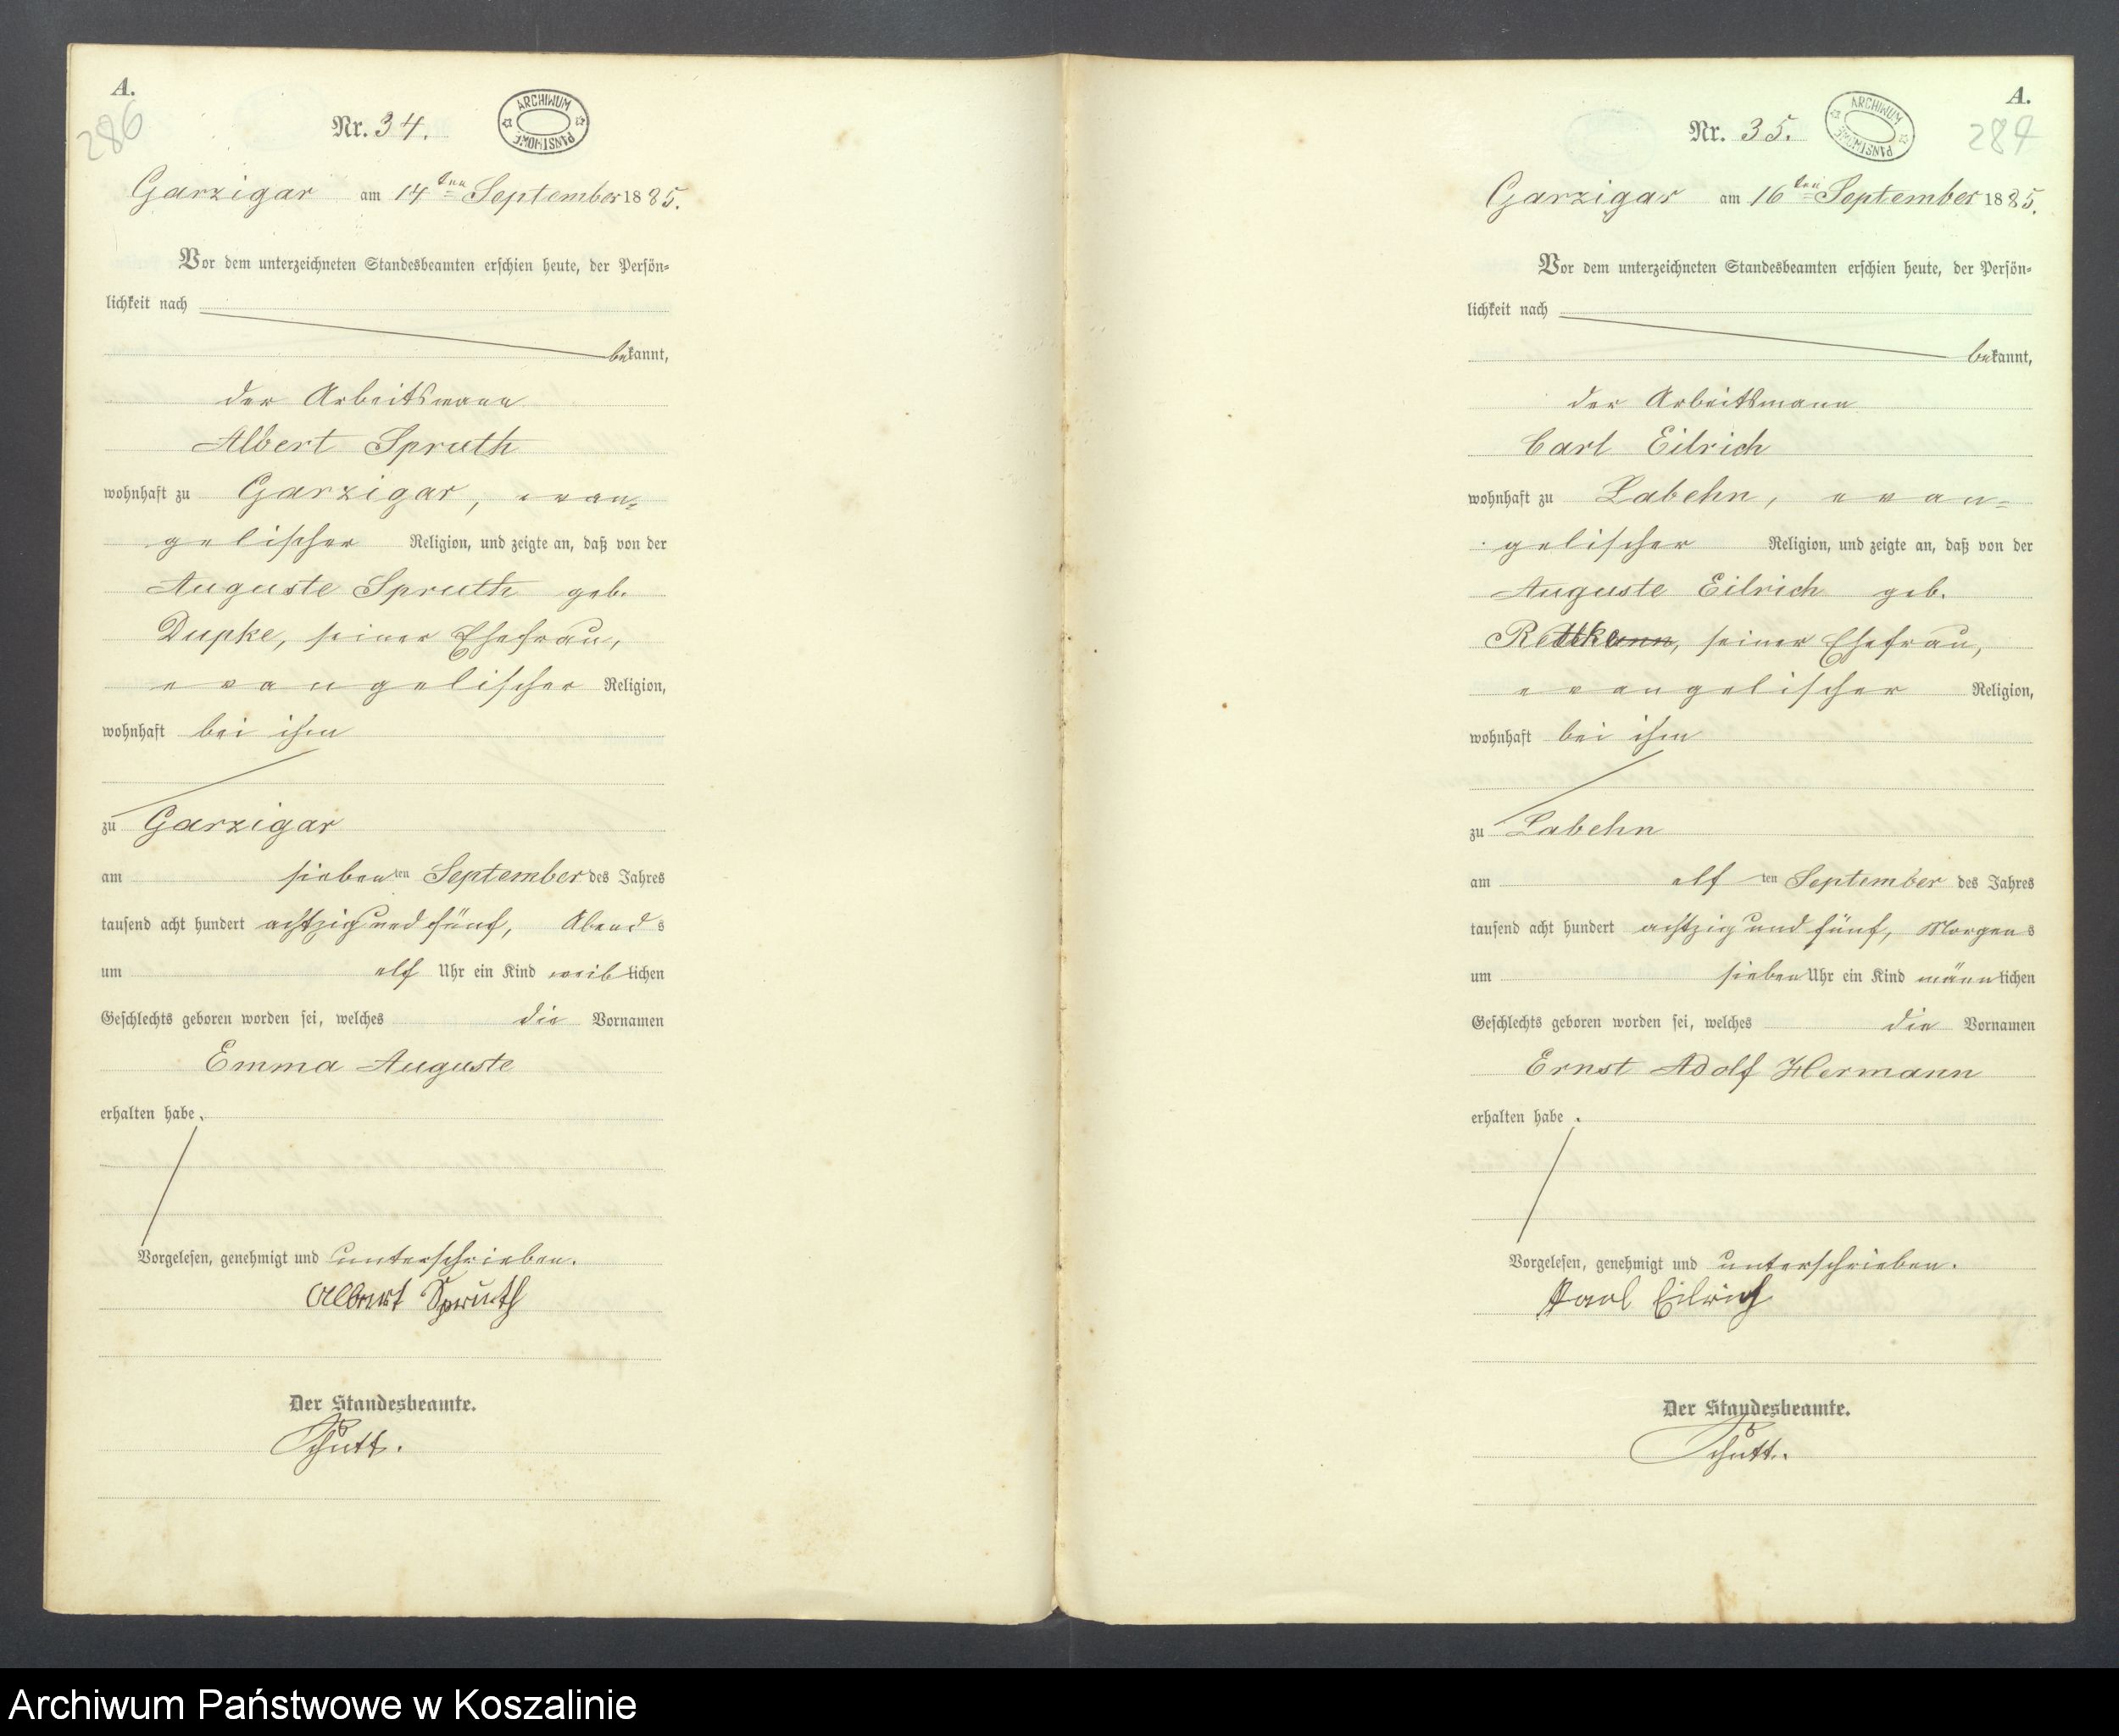 A.
286
Nr. 34.
ARCHIWUM PAŃSTWOWE
Garzigar am 14ten September 1885.
Vor dem unterzeichneten Standesbeamten erschien heute, der Persön=
lichkeit nach
bekannt,
der Arbeitsmann
Albert Spruth
wohnhaft zu Garzigar, evan=
gelischer Religion, und zeigte an, daß von der
Auguste Spruth geb.
Dupke, seiner Ehefrau,
evangelischer Religion,
wohnhaft bei ihm
zu Garzigar
am siebenten September des Jahres
tausend acht hundert achtzig und fünf, Abends
um elf Uhr ein Kind weiblichen
Geschlechts geboren worden sei, welches die Vornamen
Emma Auguste
erhalten habe.
Vorgelesen, genehmigt und unterschrieben.
Albert Spruth
Der Standesbeamte.
Schütt.
A.
287
Nr. 35.
ARCHIWUM PAŃSTWOWE
Garzigar am 16ten September 1885.
Vor dem unterzeichneten Standesbeamten erschien heute, der Persön=
lichkeit nach
bekannt,
der Arbeitsmann
Carl Eilrich
wohnhaft zu Labehn, evan=
gelischer Religion, und zeigte an, daß von der
Auguste Eilrich geb.
seiner Ehefrau,
evangelischer Religion,
wohnhaft bei ihm
zu Labehn
am elften September des Jahres
tausend acht hundert achtzig und fünf, Morgens
um sieben Uhr ein Kind männlichen
Geschlechts geboren worden sei, welches die Vornamen
Ernst Adolf Hermann
erhalten habe.
Vorgelesen, genehmigt und unterschrieben.
Karl Eilrich
Der Standesbeamte.
Schütt.
Archiwum Państwowe w Koszalinie